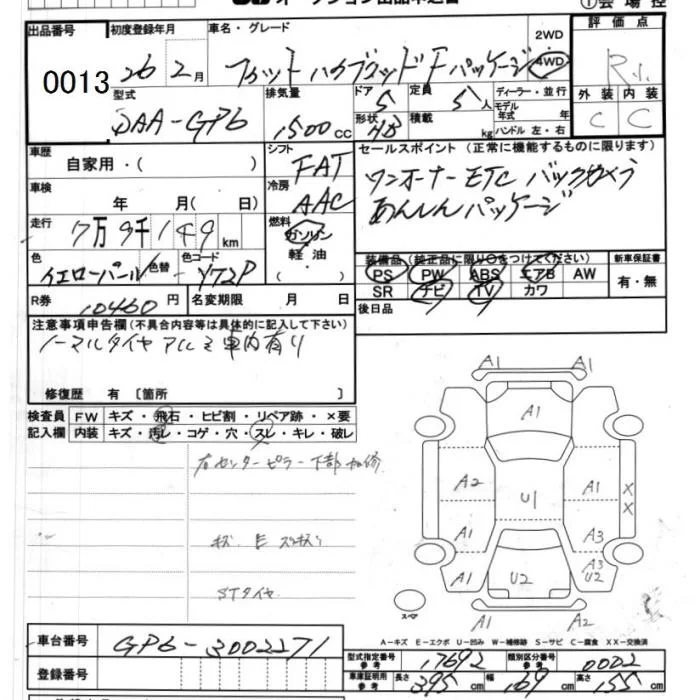 ①会場控
出品番号
0013
初度登録年月
26 2月
車名・グレード
フィットハイブリッド Fパッケージ
2WD
4WD
評価点
R1
外装 内装
C C
型式
DAA-GP6
排気量
1500cc
ドア
5
形状
HB
定員
5人
積載
kg
ディーラー・並行
モデル年式 年
ハンドル 左・右
車歴
自家用・( )
シフト
FAT
冷房
AAC
セールスポイント (正常に機能するものに限ります)
ワンオーナー ETC バックカメラ
あんしんパッケージ
車検
年 月( 日)
走行
7万9千149km
燃料
ガソリン
軽油
( )
色
イエローパール
色替
色コード
Y72P
装備品(純正品に限り○をつけてください)
PS PW ABS エアB AW
SR ナビ TV カワ
新車保証書
有・無
R券
10460円
名変期限 月 日
後日品
注意事項申告欄(不具合内容等は具体的に記入して下さい)
ノーマルタイヤ アルミ 車内有り
修復歴 有 〔箇所 〕
検査員記入欄
FW キズ・飛石・ヒビ割・リペア跡・×要
内装 キズ・汚レ・コゲ・穴・スレ・キレ・破レ
右センターピラー下部 加修
STタイヤ
A1
A1
A1
A2
A1
A1
U1
A1
X
X
A3
A3
U2
U2
A1
A2
スペア
A-キズ E-エクボ U-凹み W-補修跡 S-サビ C-腐食 XX-交換済
車台番号
GP6-3002271
登録番号
型式指定番号 参考
17692
類別区分番号 参考
0002
車庫証明用 参考
長さ 395cm
幅 169cm
高さ 155cm